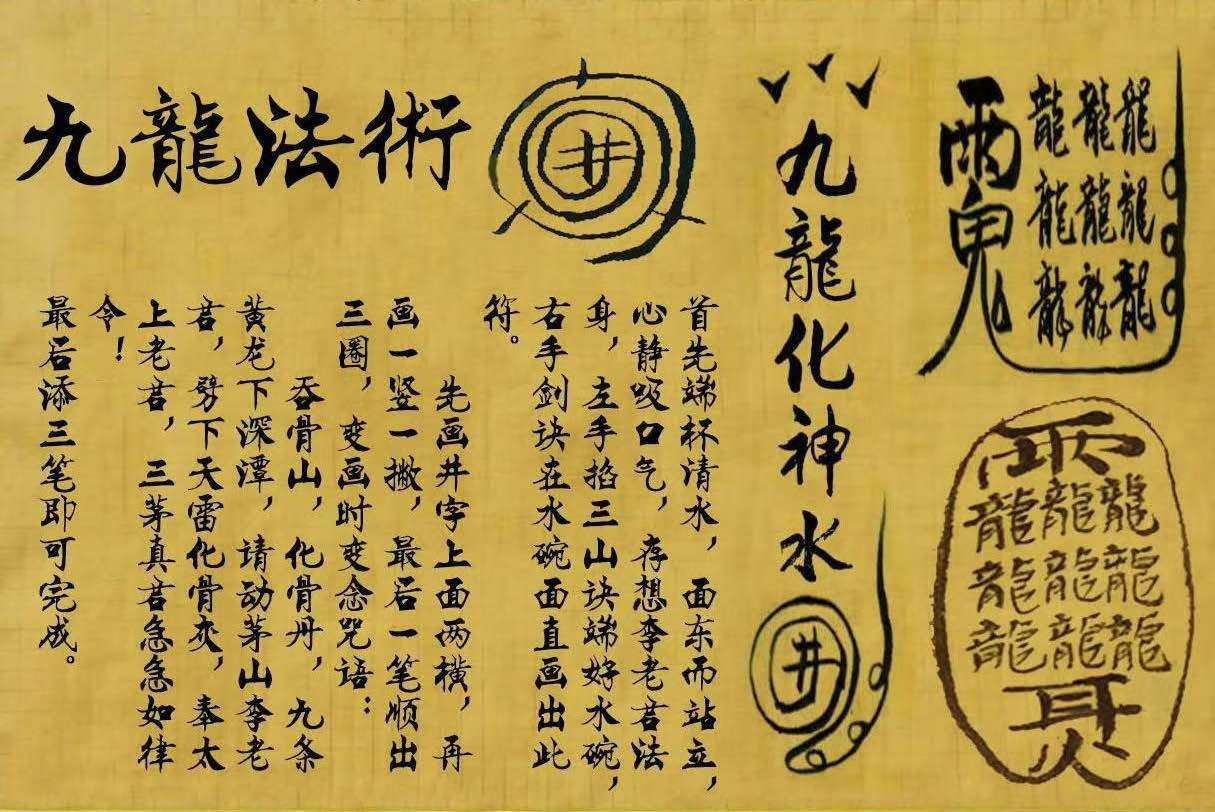 九龍法術
井
首先端杯清水，面东而站立，
心静吸口气，存想李老君法
身，左手掐三山诀端好水碗，
右手剑诀在水碗面直画出此
符。
先画井字上面两横，再
画一竖一撇，最后一笔顺出
三圈，变画时变念咒语：
吞骨山，化骨丹，九条
黄龙下深潭，请动茅山李老
君，劈下天雷化骨灰，奉太
上老君，三茅真君急急如律
令！
最后添三笔即可完成。
九龍化神水
井
雨鬼
龍龍龍
龍龍龍
龍龍龍
雨
龍龍龍
龍龍龍
龍龍龍